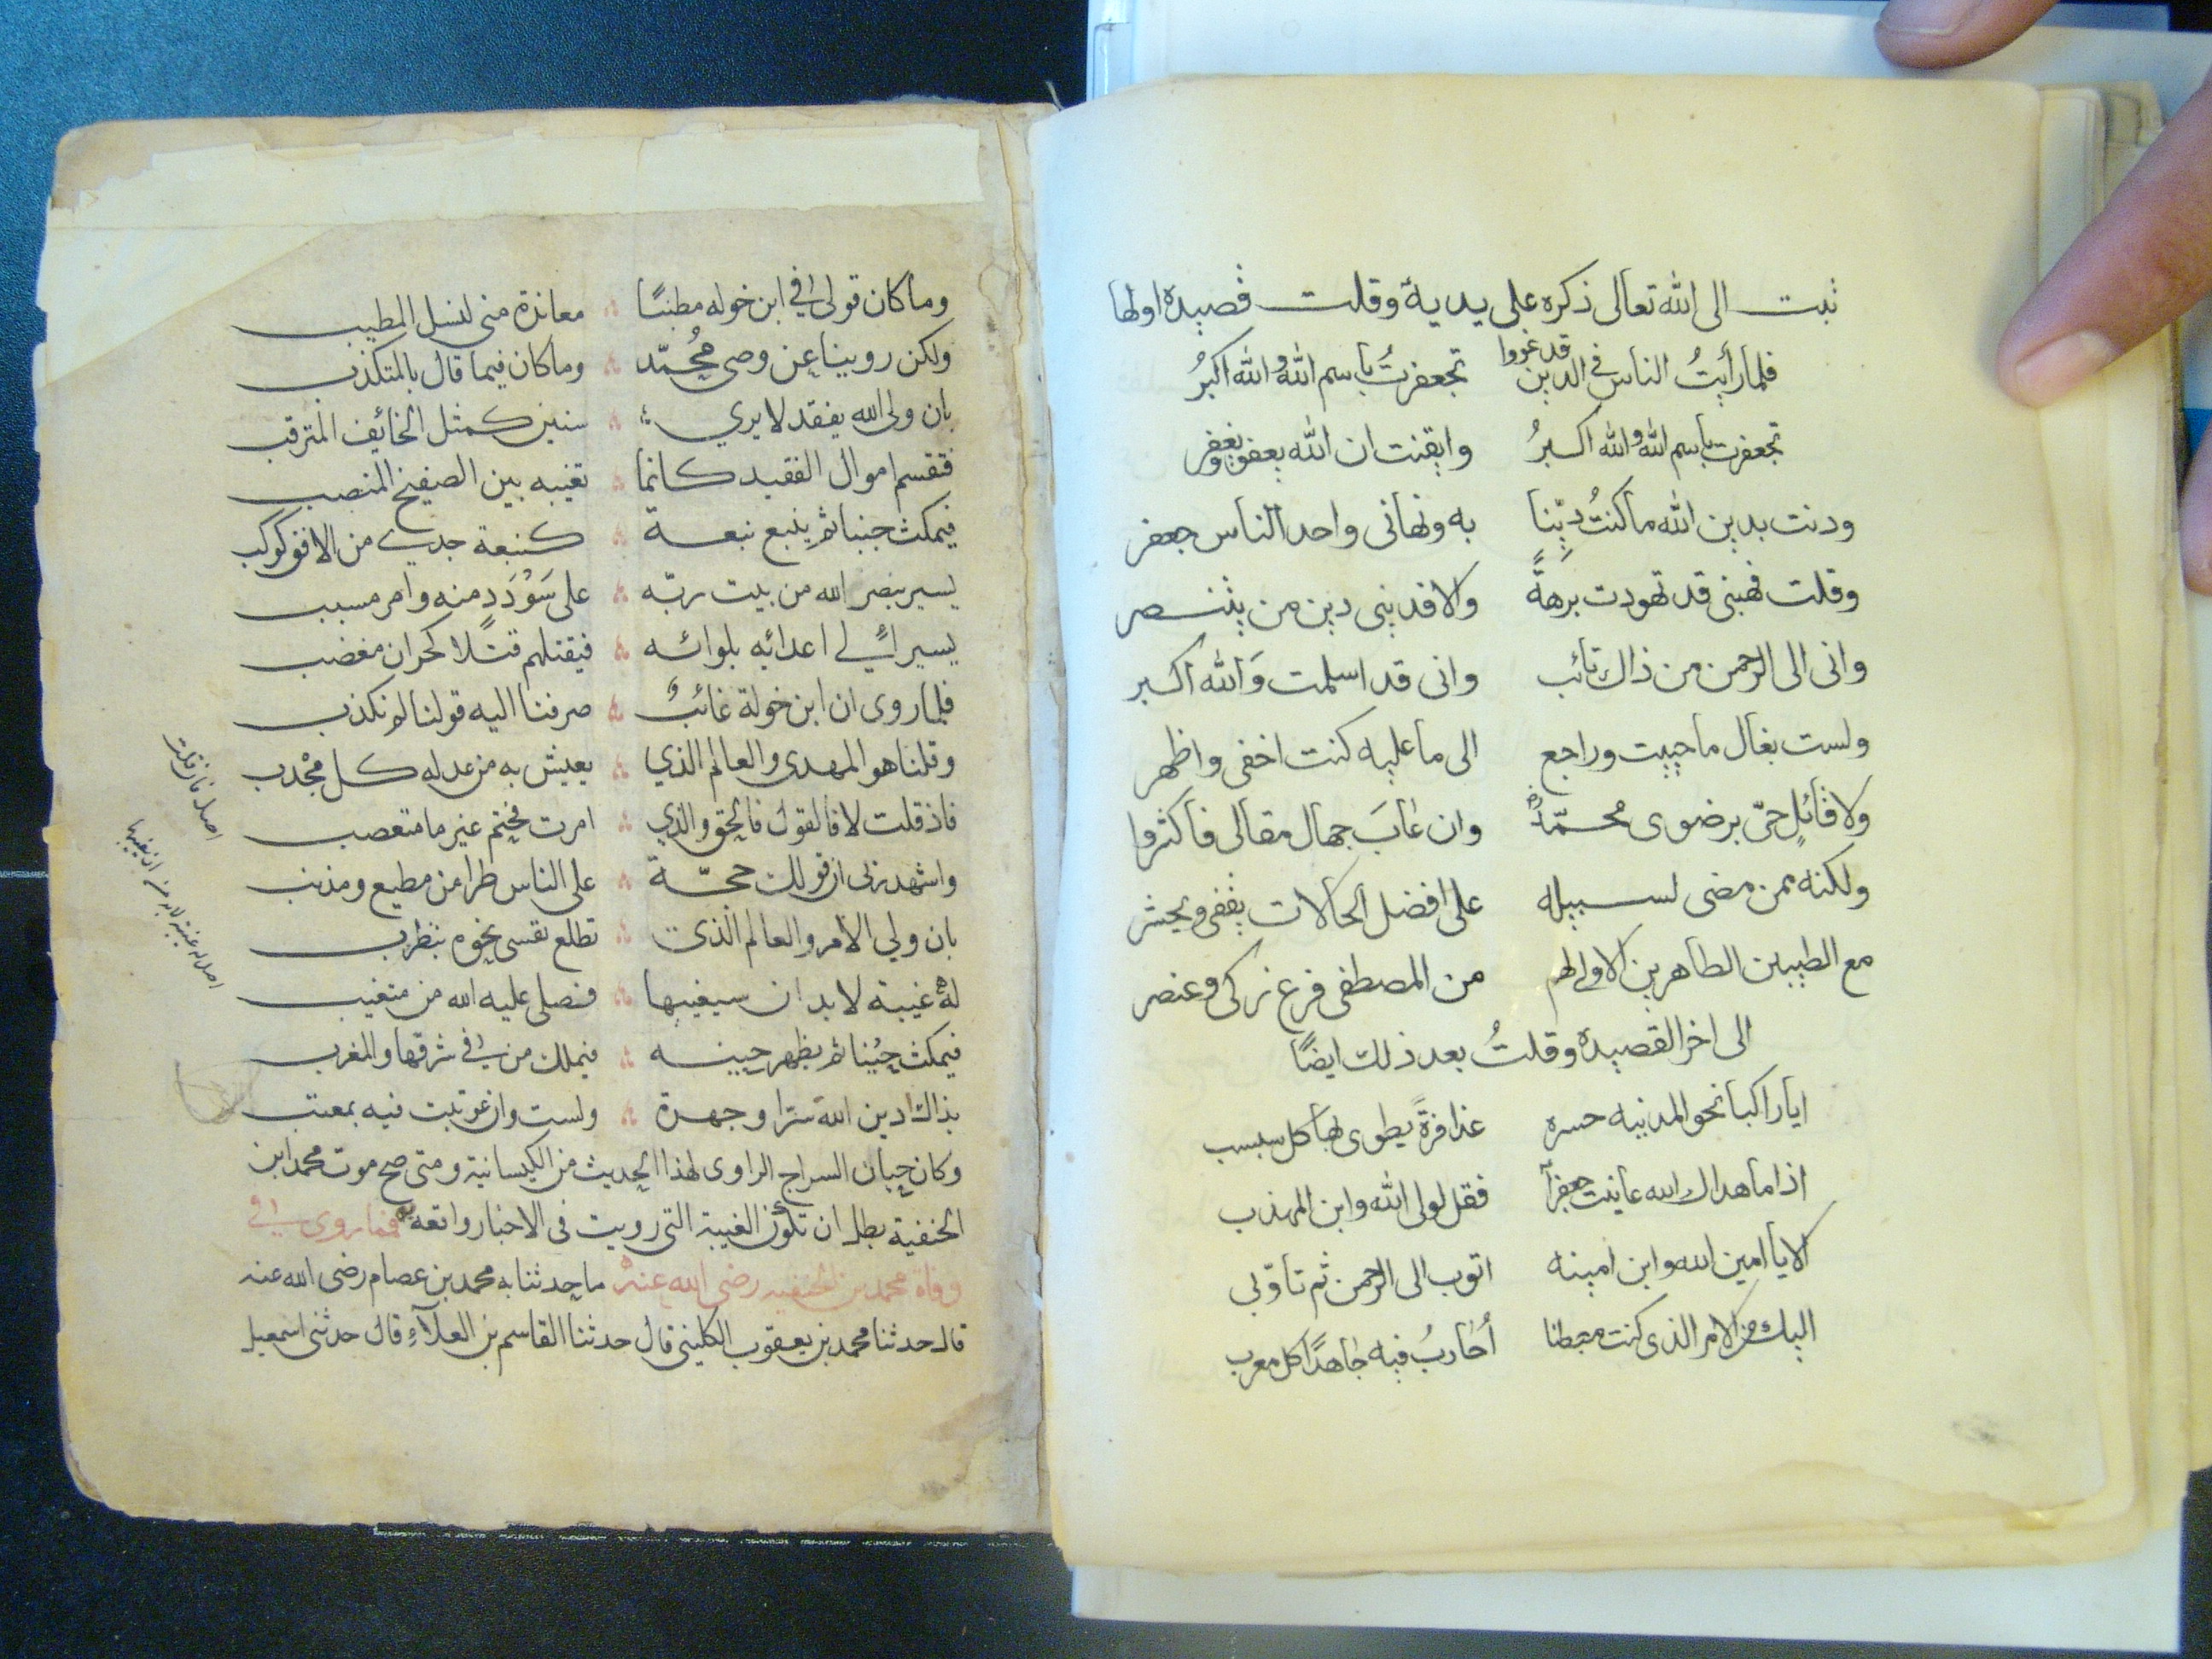 ثبت الى الله تعالى ذكره على يديه وقلت قصيدة اولها
فلما رأيتُ الناس في الدين قد غووا تجعفرتُ باسم الله والله اكبرُ
تجعفرت باسم الله والله اكبرُ وايقنت ان الله يعفو ويغفر
ودنت بدين الله ما كنتُ ديّنا به ونهانى واحد الناس جعفر
وقلت فهبنى قد تهودت برهةً والا فدينى دين من يتنصر
وانى الى الرحمن من ذاك تائب وانى قد اسلمت وَالله اكبر
ولست بغال ما حييت وراجع الى ما عليه كنت اخفى واظهر
ولا قائلٍ حىّ برضوى محمّد وان عابَ جهال مقالى فاكثروا
ولكنه ممن مضى لسبيله على افضل الحالات يقفى ويحبر
مع الطيبين الطاهرين الاولى لهم من المصطفى فرع زكى وعنصر
الى اخر القصيدة وقلتُ بعد ذلك ايضًا
ايا راكبا نحو المدينه جسره عذافرةً يطوى بها كل سبسب
اذا ما هداك الله عاينت جعفرًا فقل لولى الله وابن المهذب
الا يا امين الله وابن امينه اتوب الى الرحمن ثم تاوّبى
اليك من الامر الذى كنت مبطنا أحاربُ فيه جاهدًا كل معرب
وما كان قولى في ابن خوله مطنبًا معاندة منى لنسل المطيب
ولكن روينا عن وصى محُمّد وما كان فيما قال بالمتكذب
بان ولى الله يفقد لا يرى سنين كمثل الخائف المترقب
فتقسم اموال الفقيد كانما تغيبه بين الصفيح المنصب
فيمكث حينا ثم ينبع نبعة كنبعة جدى من الافق كوكب
يسير بنصر الله من بيت ربّه على سَوُدَدٍ منه وامر مسبب
يسير الى اعدائه بلوائه فيقتلهم قتلًا كحران مغضب
فلما روى ان ابن خولة غائبٌ صرفنا اليه قولنا لم نكذب
وقلنا هو المهدى والعالم الذي يعيش به من عدله كل مجْدب
فاذ قلت لا فالقول فالحق والذي امرت فحتم غير ما متعصب
واشهد ربى ان قولك حجّة على الناس طرا من مطيع ومذنب
بان ولي الامر والعالم الذى تطلع نفسى نحوه بتطرب
له غيبة لابد ان سيغيبها فصلى عليه الله من متغيب
فيمكث حينا ثم يظهر حينه فيملك من في شرقها والمغرب
بذاك ادين الله سرّا وجهرة ولست وان عوتبت فيه بمعتب
وكان حيان السراج الراوى لهذا الحديث من الكيسانية ومتى صح موت محمد ابن
الحنفية بطل ان تكون الغيبة التى رويت فى الاخبار واقعه به فمما روى في
وفاة محمد بن الحنفيه رضى الله عنه ما حدثنا به محمد بن عصام رضى الله عنه
قال حدثنا محمد بن يعقوب الكلينى قال حدثنا القاسم بن العلآءِ قال حدثنى اسمعيل
اصل فان قلت
اصل له غيبة لابد من ان يغيبها